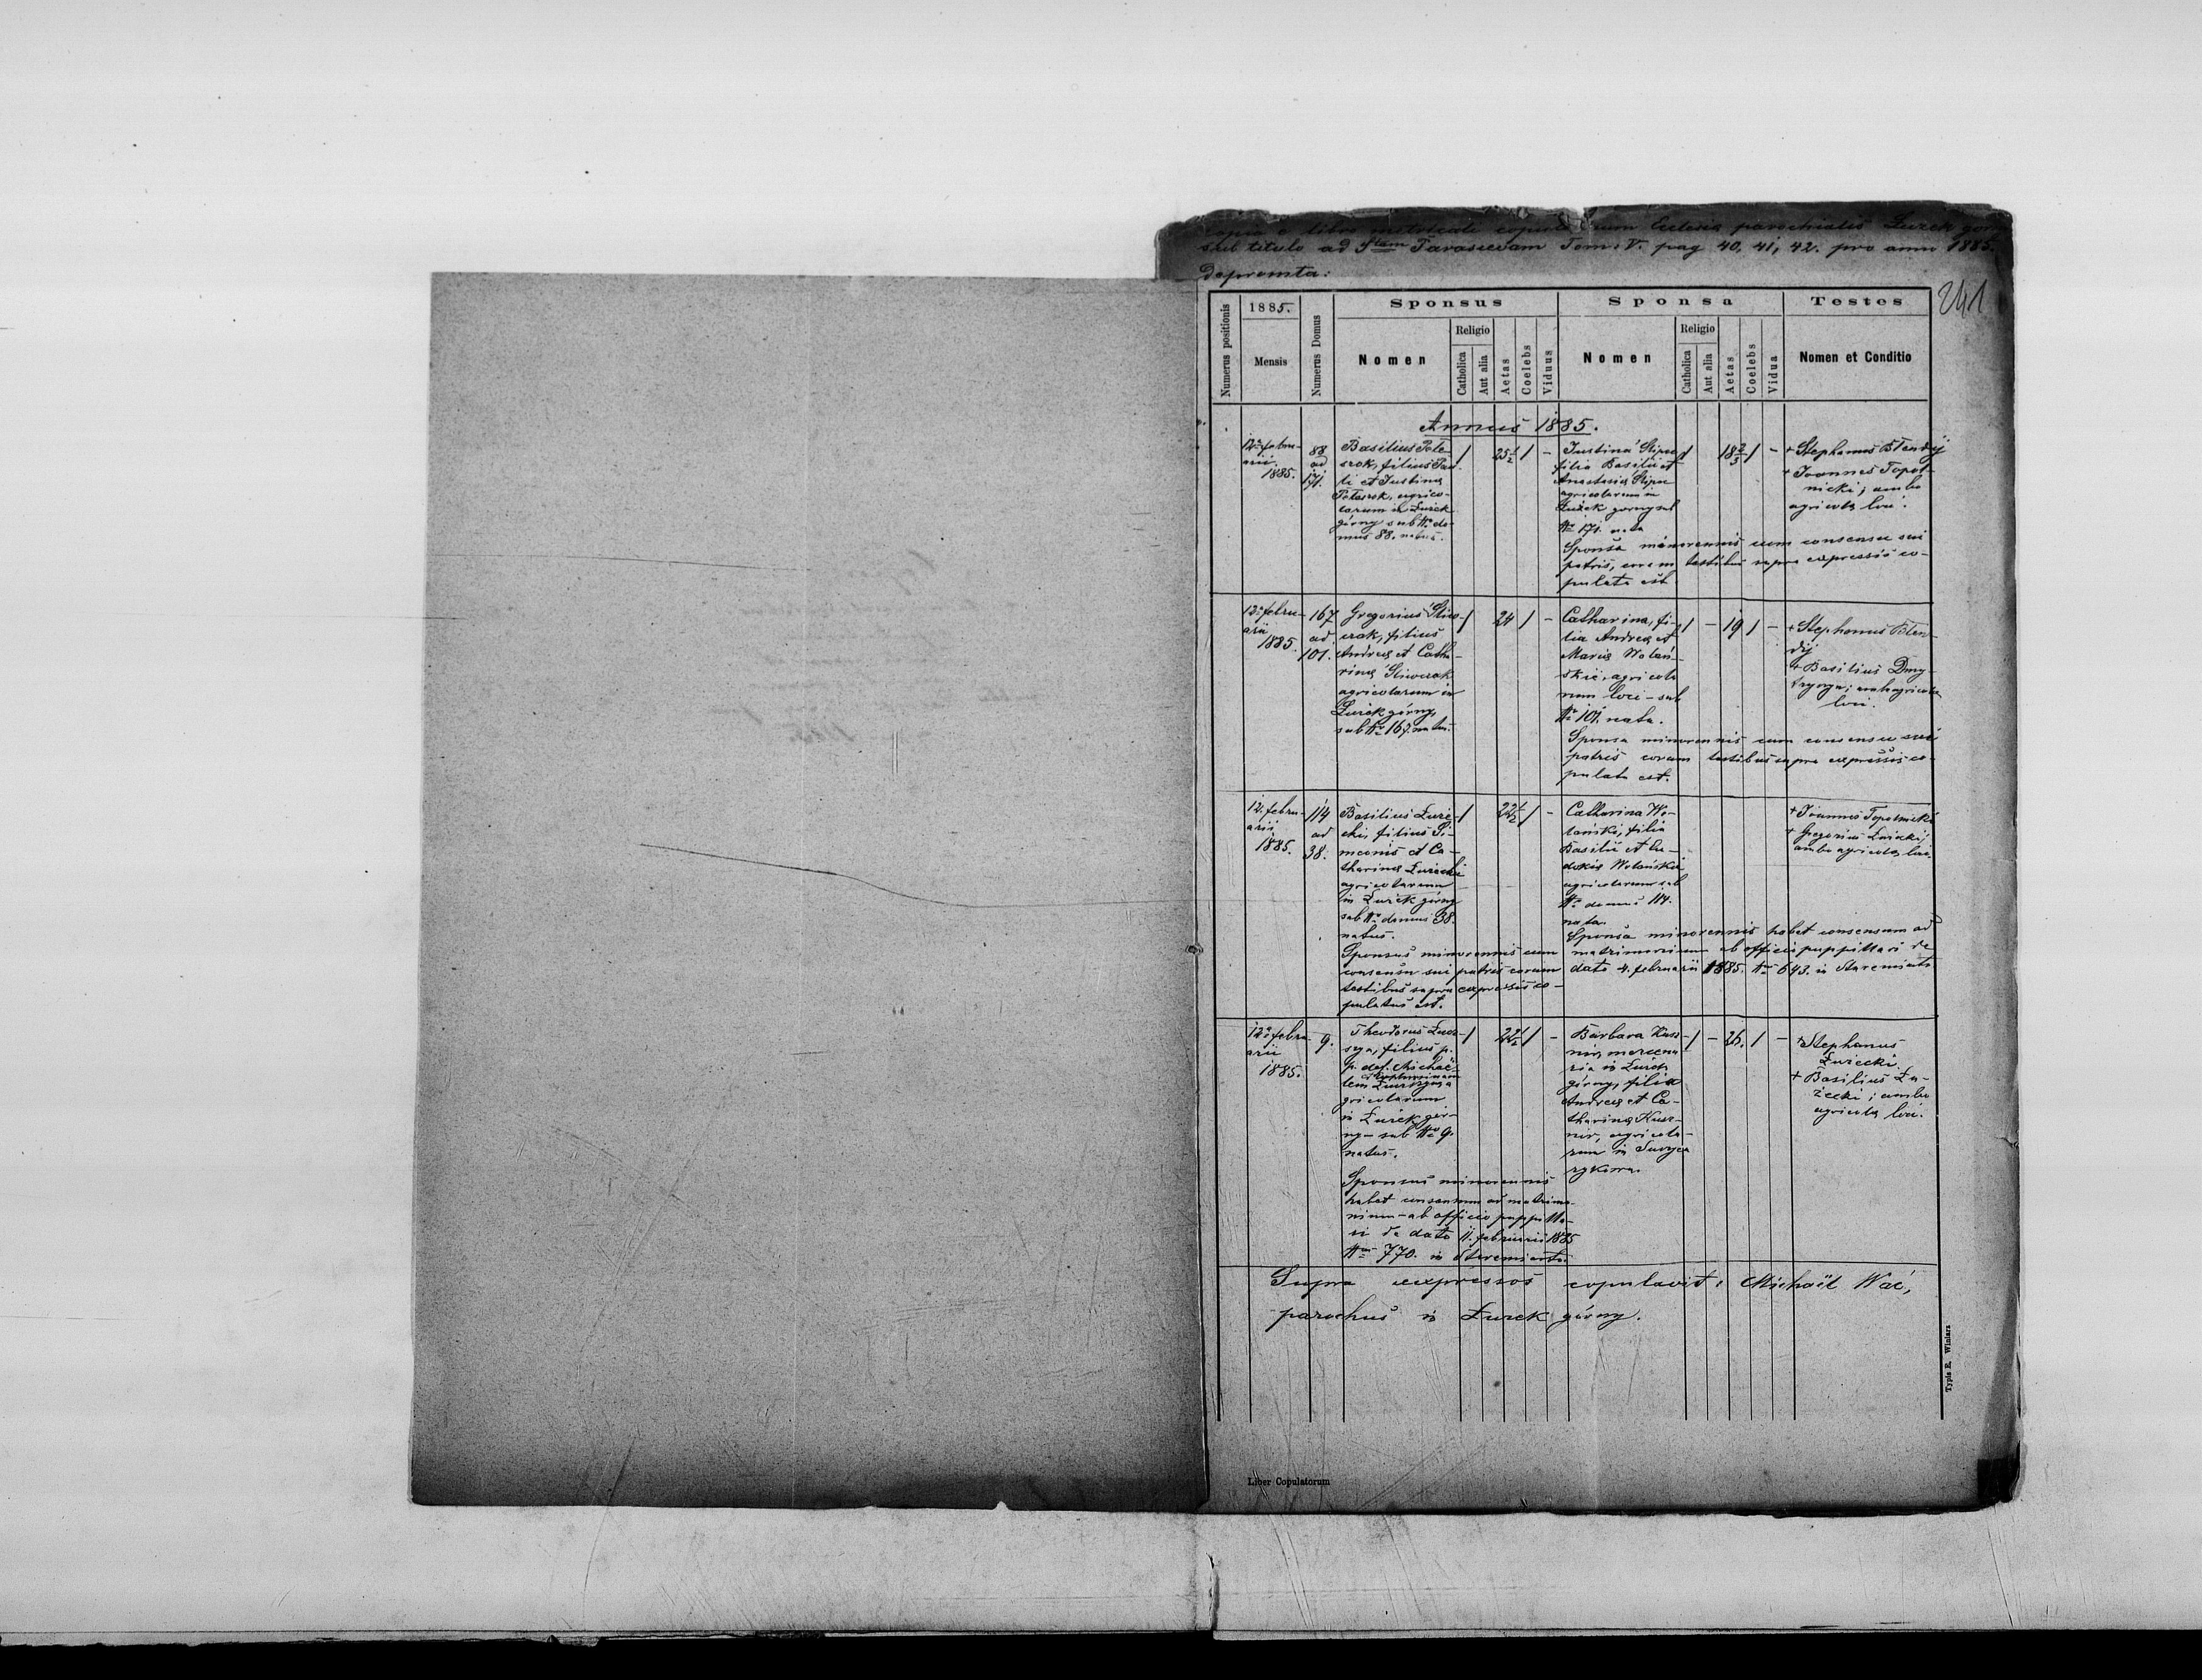 Copia e libro metricali copulatorum Eclesia parochialis Łużek górny
sub titulo ad Stam Parascevam Tom: V. pag 40, 41, 42. pro anno 1885.
depromta:
241
Numerus positionis
1885.
Mensis
Numerus Domus
Sponsus
Nomen
Religio
Catholica
Aut alia
Aetas
Coelebs
Viduus
Sponsa
Nomen
Religio
Catholica
Aut alia
Aetas
Coelebs
Vidua
Testes
Nomen et Conditio
Annus 1885.
12 febru-
arii
1885.
88
ad
171.
Basilius
filius Pau-
li et Justina
agrico-
larum in Łużek
górny sub No do-
mus 88. natus.
/
25 1/2
/
-
Justina
filia Basilii et
Anastasia
agricolarum in
Łużek gorny sub
No 171. nata
Sponsa minorennis cum consensu sui
patris, coram testibus supra expressis co-
pulata est
/
18 2/3
/
-
+ Stephanus
+ Joannes Topol-
nicki; ambo
agricola loci.
12 febru-
arii
1885.
167
ad
101.
Gregorius
filius
Andrea et Catha-
rina
agricolarum in
Łużek górny,
sub No 167. natus.
/
24
/
-
Catharina, fi-
lia Andrea et
Maria Wolań-
skie, agricola
rum loci - sub
No 101. nata.
Sponsa minorennis cum consensu sui
patris coram testibus supra expressis co-
pulata est.
/
-
19
/
-
+ Stephanus
+ Basilius Dmy-
loci.
12. febru-
arii
1885.
114
ad
38.
Basilius Łuże-
cki, filius Si-
meonis et Ca-
tharina Łużecki
agricolarum
in Łużek górny
sub No domus 38.
natus.
Sponsus minorennis cum
consensu sui patris coram
testibus supra expressis co-
pulatus est.
/
22 1/2
/
-
Catharina Wo-
lański, filia
Basilii et Eu-
dokia Wolański,
agricolarum sub
No domus 114.
nata.
Sponsa minorennis habet consensum ad
matrimonium ab officio puppillari de
dato 4. februarii 1885. No 643. in Staremiasto
+ Joannes Topolnicki
+ Gregorius Łużecki;
ambo agricola loci.
12 febru-
arii
1885.
9.
Theodorus
filius p.
p. def. Michaë-
lem
gricolarum
in Łużek gór-
ny - sub No 9.
natus.
Sponsus minorennis
habet consensum ad matrimo-
nium - ab officio puppilla-
ri de dato 11. februarii 1885
No 770. in Staremiasto.
/
22 1/2
/
-
Barbara Kusz-
nir, mercena
ria in Łużek
górny, filia
Andrea et Ca-
tharina Kusz-
nir, agricola-
rum in
/
-
/
-
+ Stephanus
Łużecki.
+ Basilius Łu-
żecki; ambo
agricola loci.
Supra expressos copulavit: Michaël Wać,
parochus in Łużek górny.
Typis E. Winiarz
Liber Copulatorum